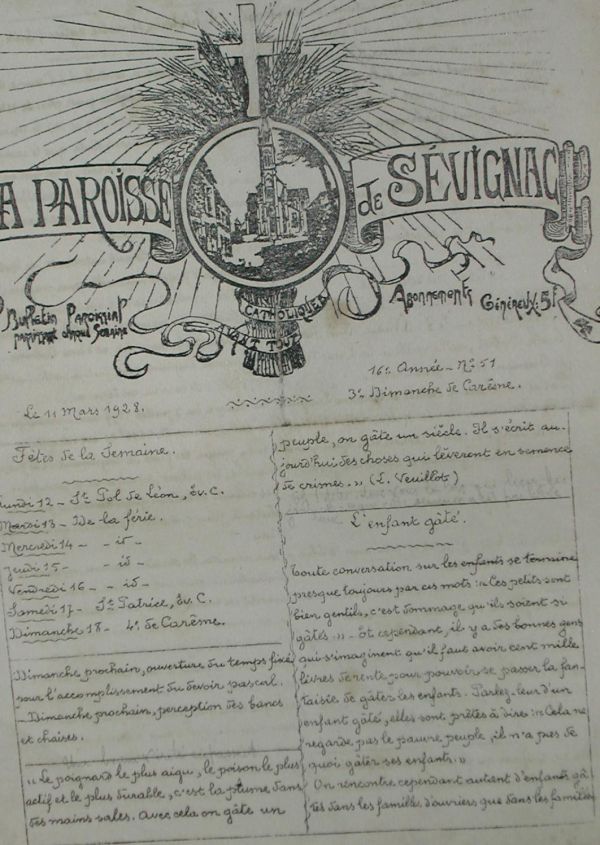 A PAROISSE
de SÉVIGNAC
Bulletin Paroissial
paraissant chaque Semaine
CATHOLIQUE
AVANT TOUT
Abonnements
Généreux: 5f
Le 11 Mars 1928.
16e Année - No 51
3e Dimanche de Carême.
Fêtes de la Semaine.
Lundi 12 - St Pol de Léon, Ev. C.
Mardi 13 - De la férie.
Mercredi 14 - - id -
Jeudi 15 - - id -
Vendredi 16 - - id -
Samedi 17 - St Patrice, Ev. C.
Dimanche 18 - 4e de Carême.
Dimanche prochain, ouverture du temps fixé
pour l'accomplissement du devoir pascal.
- Dimanche prochain, perception des bancs
et chaises.
"Le poignard le plus aigu, le poison le plus
actif et le plus durable, c'est la plume dans
des mains sales. Avec cela on gâte un
peuple, on gâte un siècle. Il s'écrit au-
jourd'hui des choses qui lèveront en semence
de crimes." (L. Veuillot)
L'enfant gâté.
Toute conversation sur les enfants se termine
presque toujours par ces mots: "Ces petits sont
bien gentils, c'est dommage qu'ils soient si
gâtés." - Et cependant, il y a des bonnes gens
qui s'imaginent qu'il faut avoir cent mille
livres de rente pour pouvoir se passer la fan-
taisie de gâter les enfants. Parlez-leur d'un
enfant gâté, elles sont prêtes à dire: "Cela ne
regarde pas le pauvre peuple, il n'a pas de
quoi gâter ses enfants."
On rencontre cependant autant d'enfants gâ-
tés dans les familles d'ouvriers que dans les familles